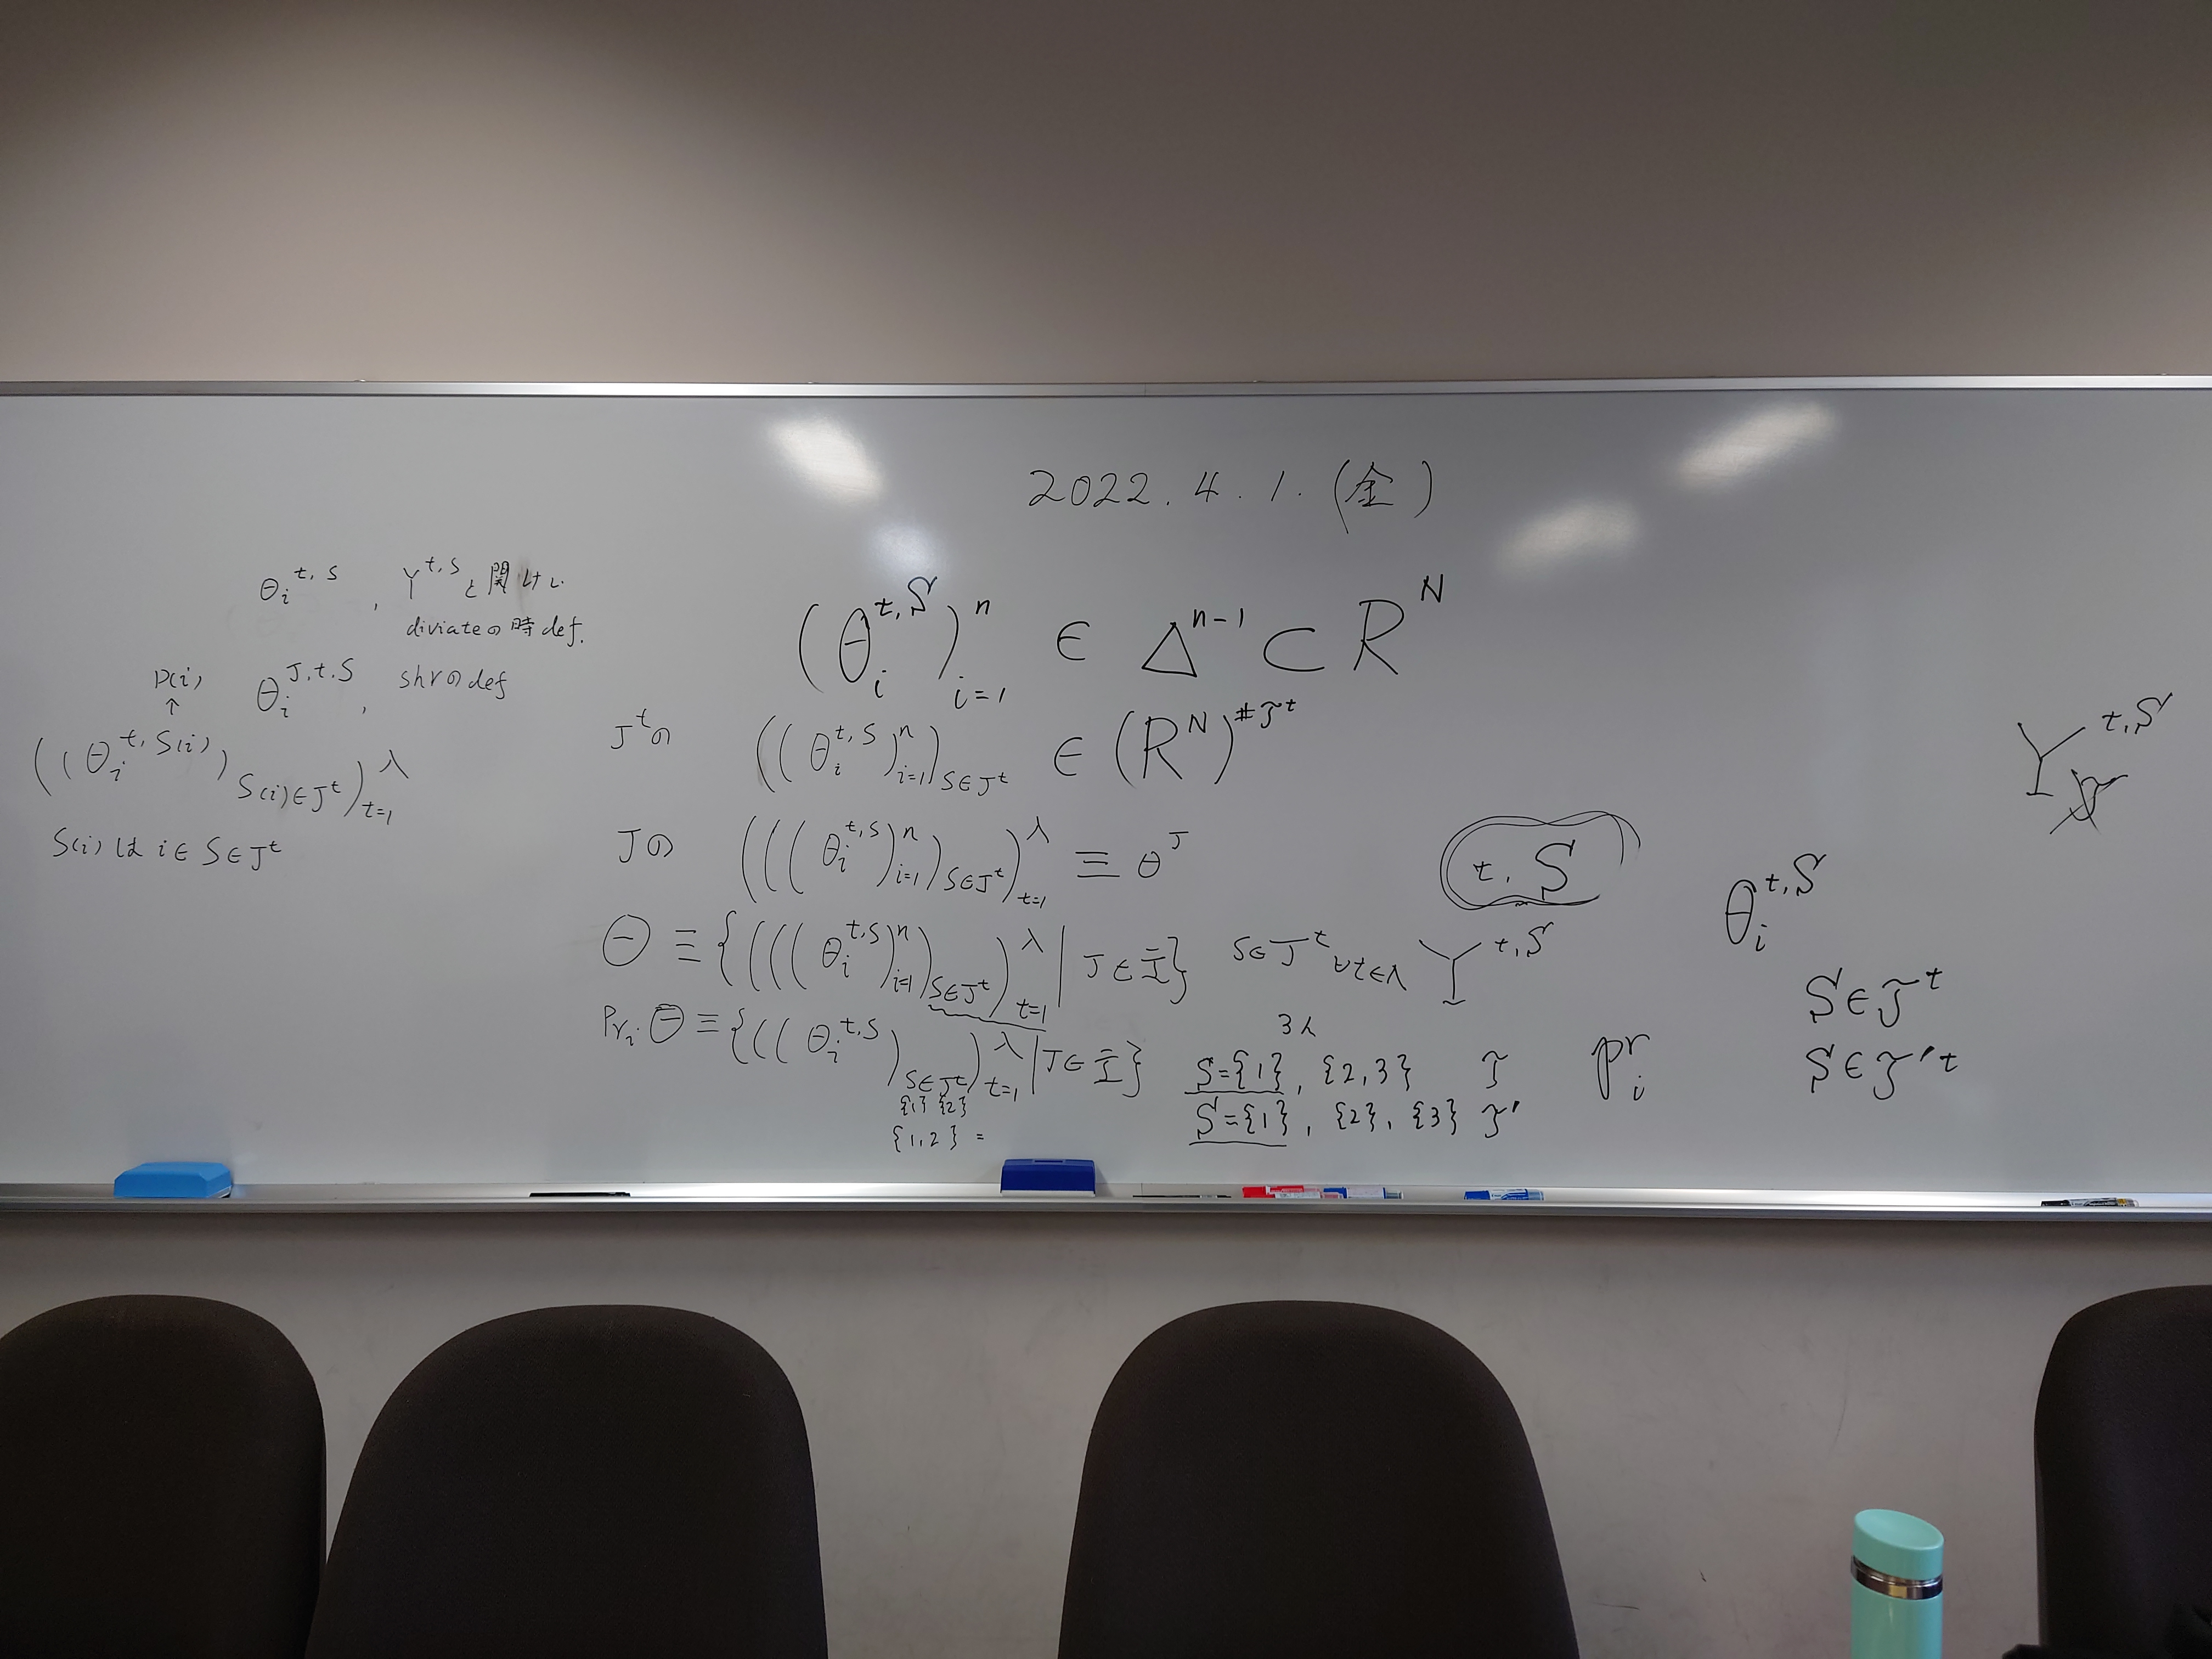 2022.4.1.(金)
θ_i^{t,S}, Y^{t,S}と関
diviateの時def.
P(i)
↑
θ_i^{J,t,S}, shrのdef
((θ_i^{t,S(i)})_{S(i)∈J^t})_{t=1}^λ
S(i)は i∈S∈J^t
(θ_i^{t,S})_{i=1}^n ∈ Δ^{n-1} ⊂ R^N
J^tの ((θ_i^{t,S})_{i=1}^n)_{S∈J^t} ∈ (R^N)^{#J^t}
Jの (((θ_i^{t,S})_{i=1}^n)_{S∈J^t})_{t=1}^λ ≡ θ^J
Θ ≡ {(((θ_i^{t,S})_{i=1}^n)_{S∈J^t})_{t=1}^λ | J∈
S∈J^t ∀t∈λ
Pr_i Θ ≡ {(((θ_i^{t,S})_{S∈J^t})_{t=1}^λ | J∈
{1} {2}
{1,2} =
t,S
Y^{t,S}
3人
S={1}, {2,3} J
S={1}, {2}, {3} J'
pr_i
Y^{t,S}
θ_i^{t,S}
S∈J^t
S∈J'^t